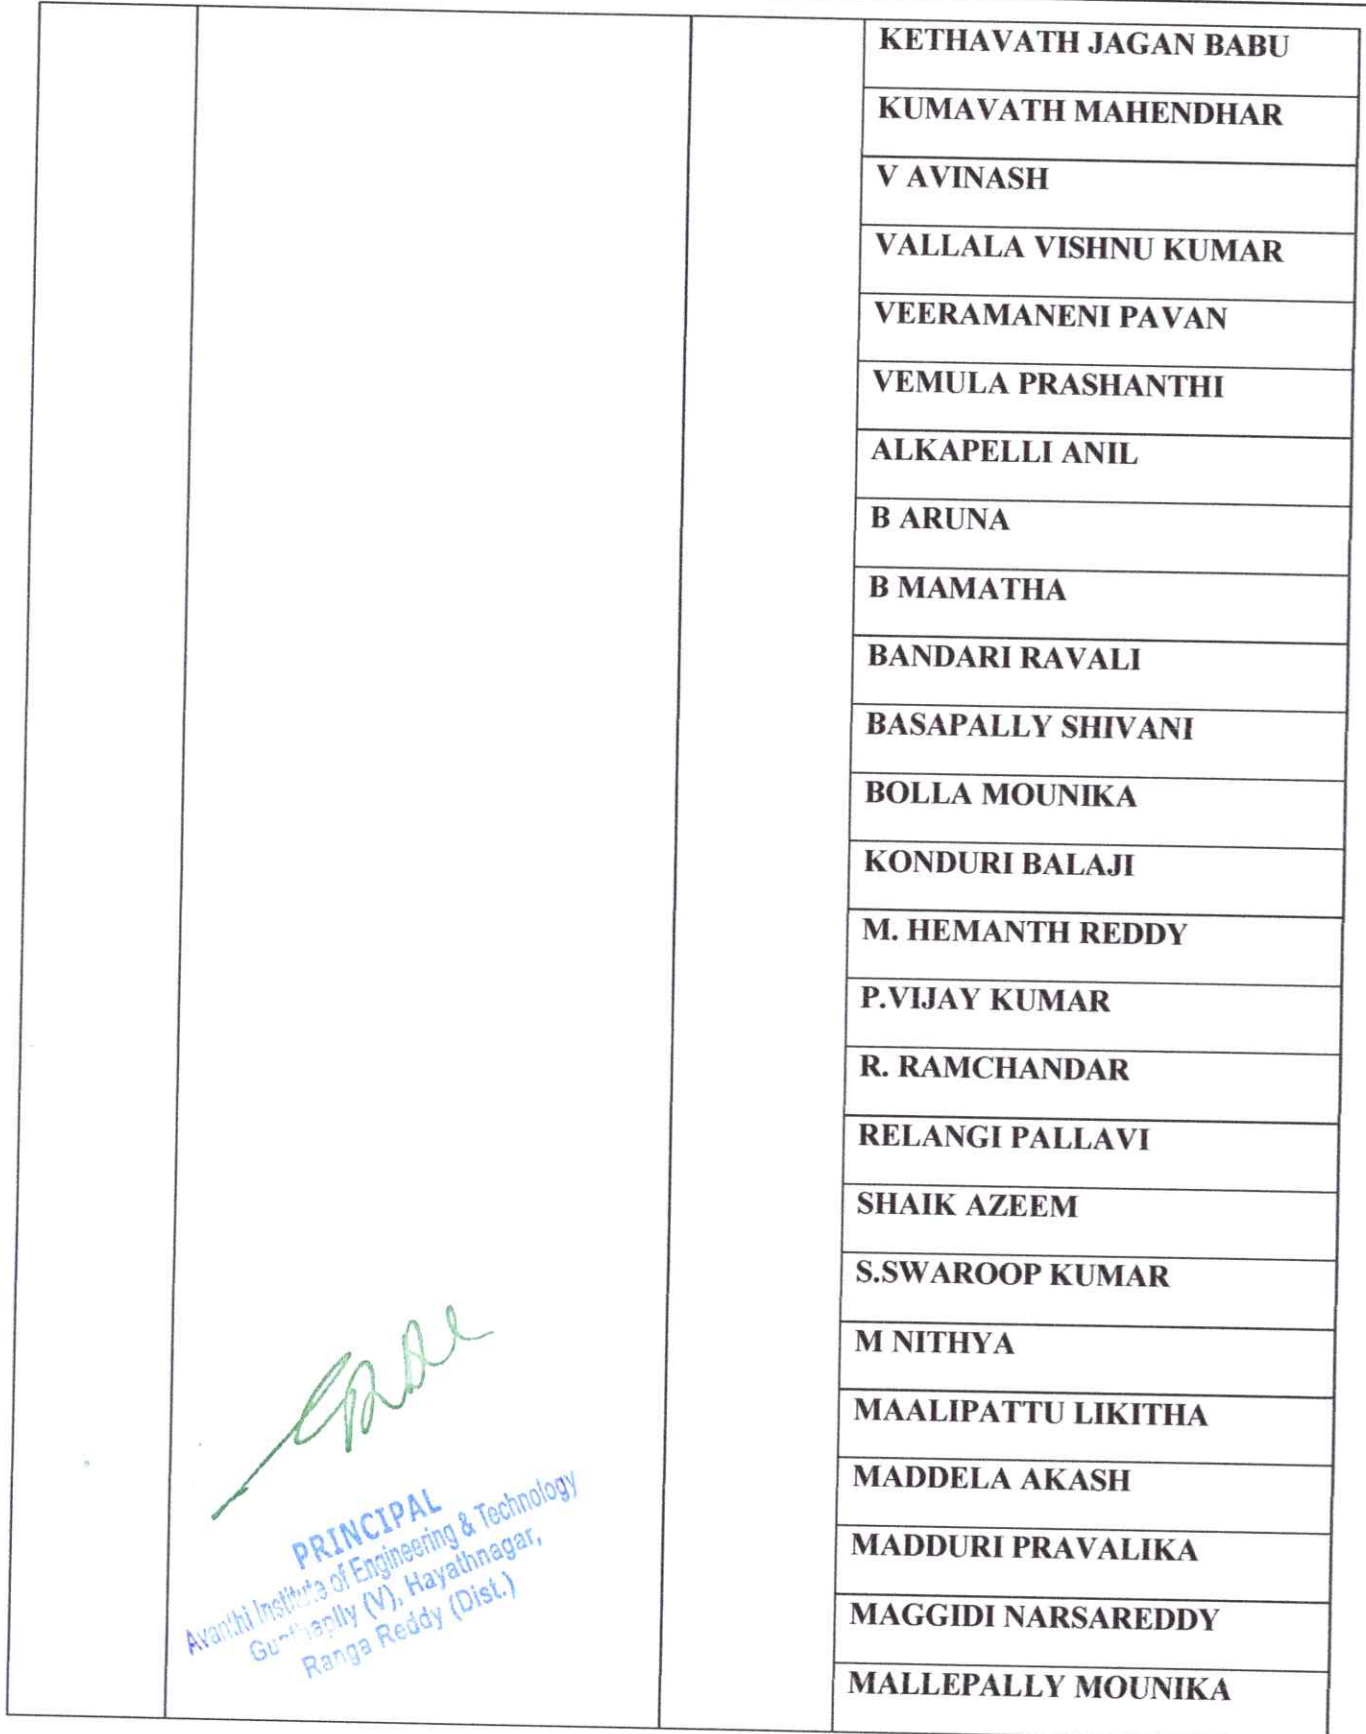 KETHAVATH JAGAN BABU
KUMAVATH MAHENDHAR
V AVINASH
VALLALA VISHNU KUMAR
VEERAMANENI PAVAN
VEMULA PRASHANTHI
ALKAPELLI ANIL
B ARUNA
B MAMATHA
BANDARI RAVALI
BASAPALLY SHIVANI
BOLLA MOUNIKA
KONDURI BALAJI
M. HEMANTH REDDY
P.VIJAY KUMAR
R. RAMCHANDAR
RELANGI PALLAVI
SHAIK AZEEM
S.SWAROOP KUMAR
M NITHYA
MAALIPATTU LIKITHA
MADDELA AKASH
MADDURI PRAVALIKA
MAGGIDI NARSAREDDY
MALLEPALLY MOUNIKA
PRINCIPAL
Avanthi Institute of Engineering & Technology
(V), Hayathnagar,
Ranga Reddy (Dist.)